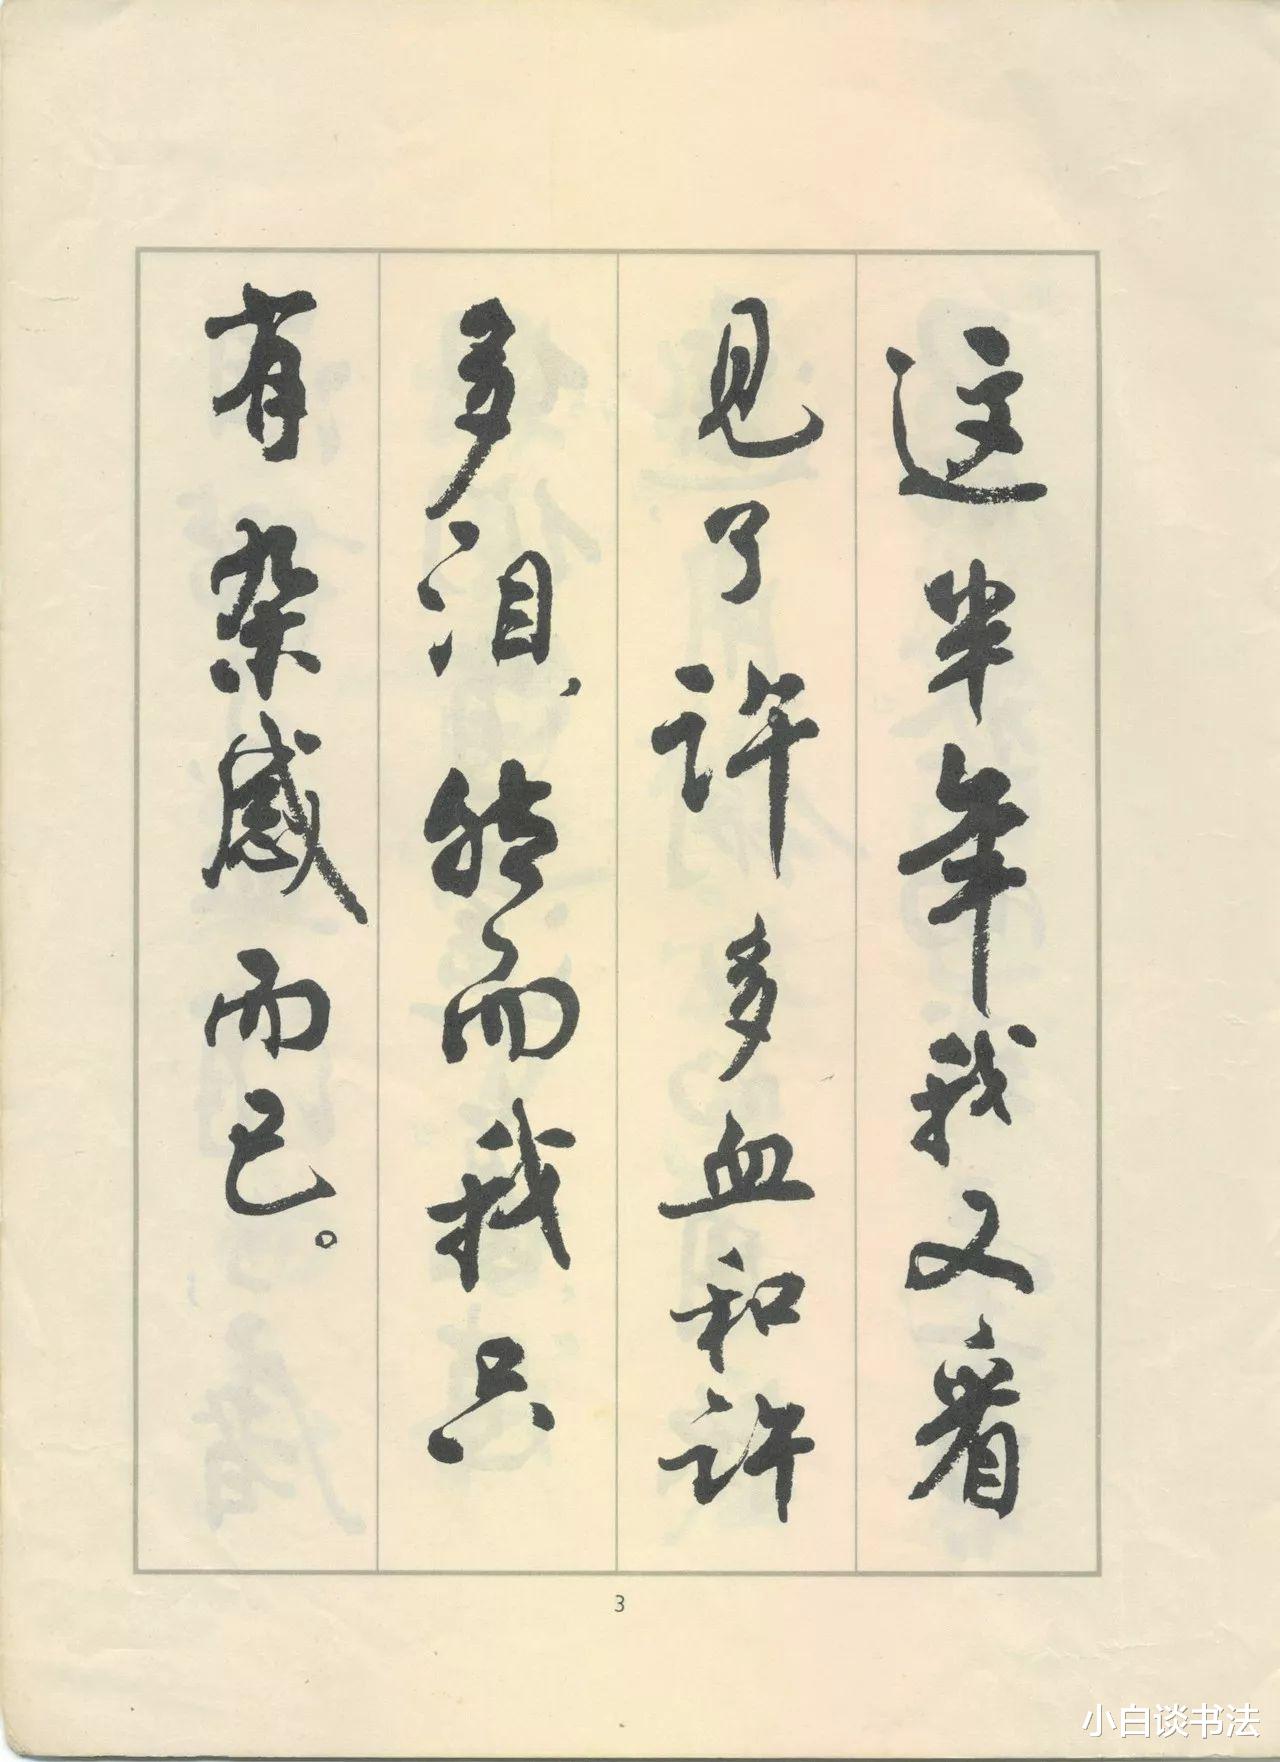 这半年我又看
见了许多血和许
多泪、然而我只
有杂感而已。
3
小白谈书法